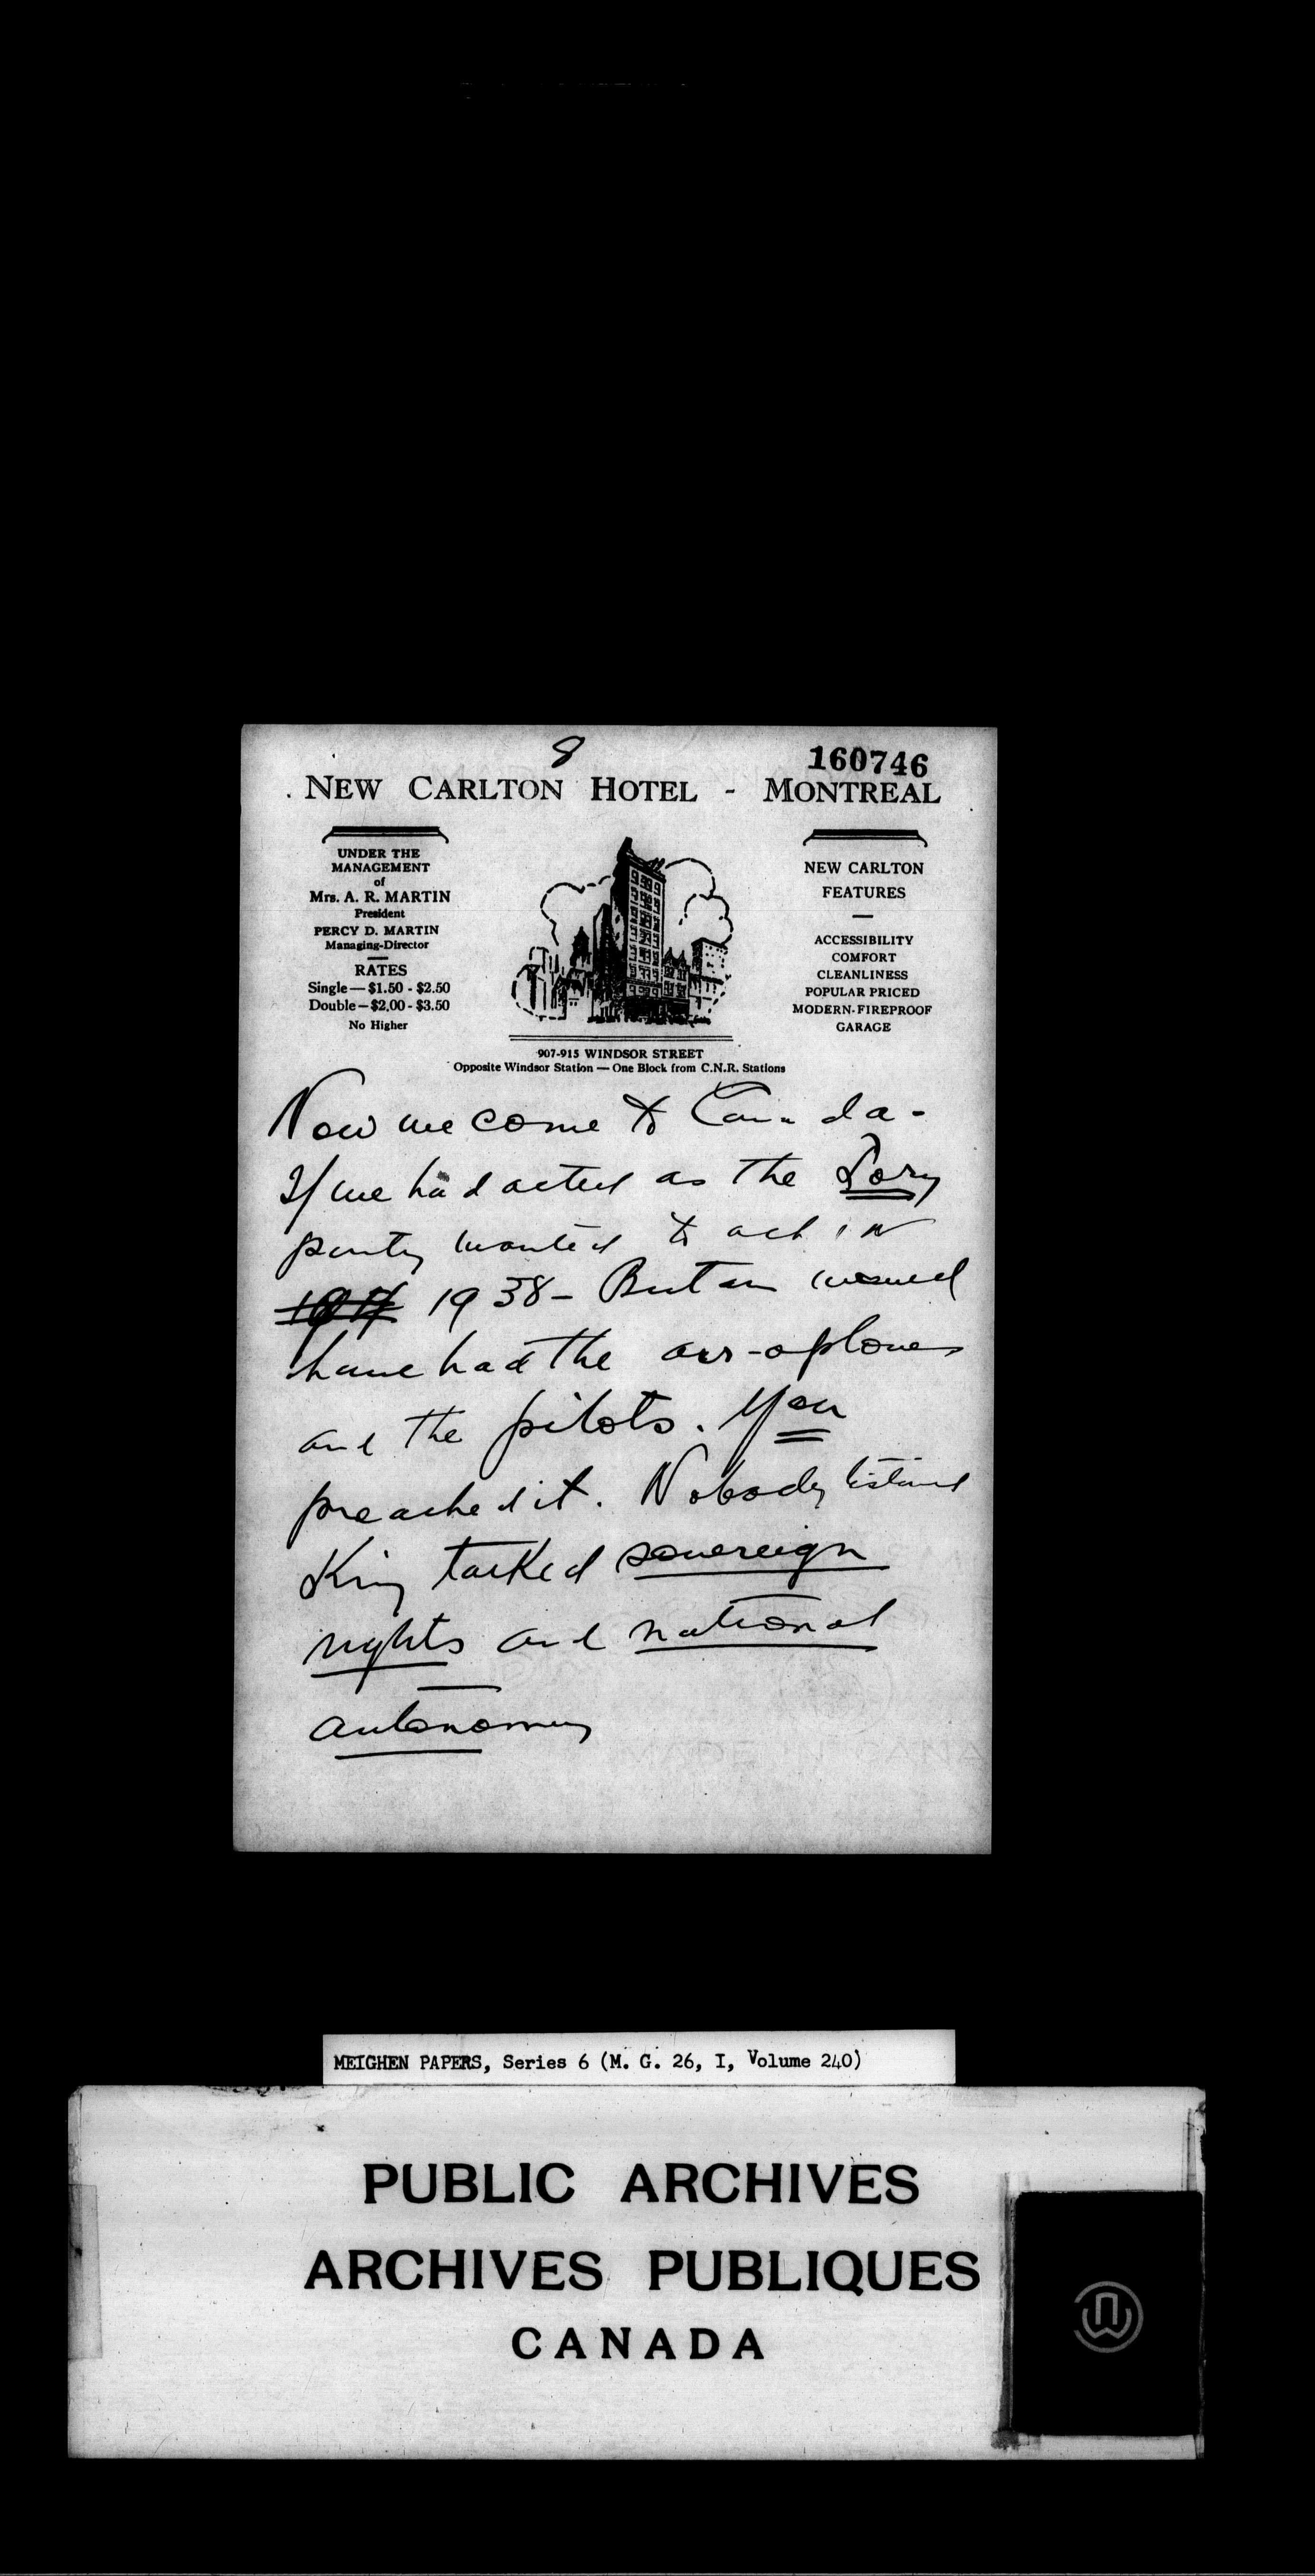 8
160746
NEW CARLTON HOTEL - MONTREAL
UNDER THE
MANAGEMENT
of
Mrs. A. R. MARTIN
President
PERCY D. MARTIN
Managing-Director
RATES
Single — $1.50 - $2.50
Double — $2.00 - $3.50
No Higher
NEW CARLTON
FEATURES
ACCESSIBILITY
COMFORT
CLEANLINESS
POPULAR PRICED
MODERN-FIREPROOF
GARAGE
907-915 WINDSOR STREET
Opposite Windsor Station — One Block from C.N.R. Stations
Now we come to Canada -
If we had acted as the Tory
party wanted to act in
1938 - Britain would
have had the air-oplanes
and the pilots. You
preached it. Nobody listened
King talked sovereign
rights and national
autonomy
MADE IN CANA
MEIGHEN PAPERS, Series 6 (M. G. 26, I, Volume 240)
PUBLIC ARCHIVES
ARCHIVES PUBLIQUES
CANADA